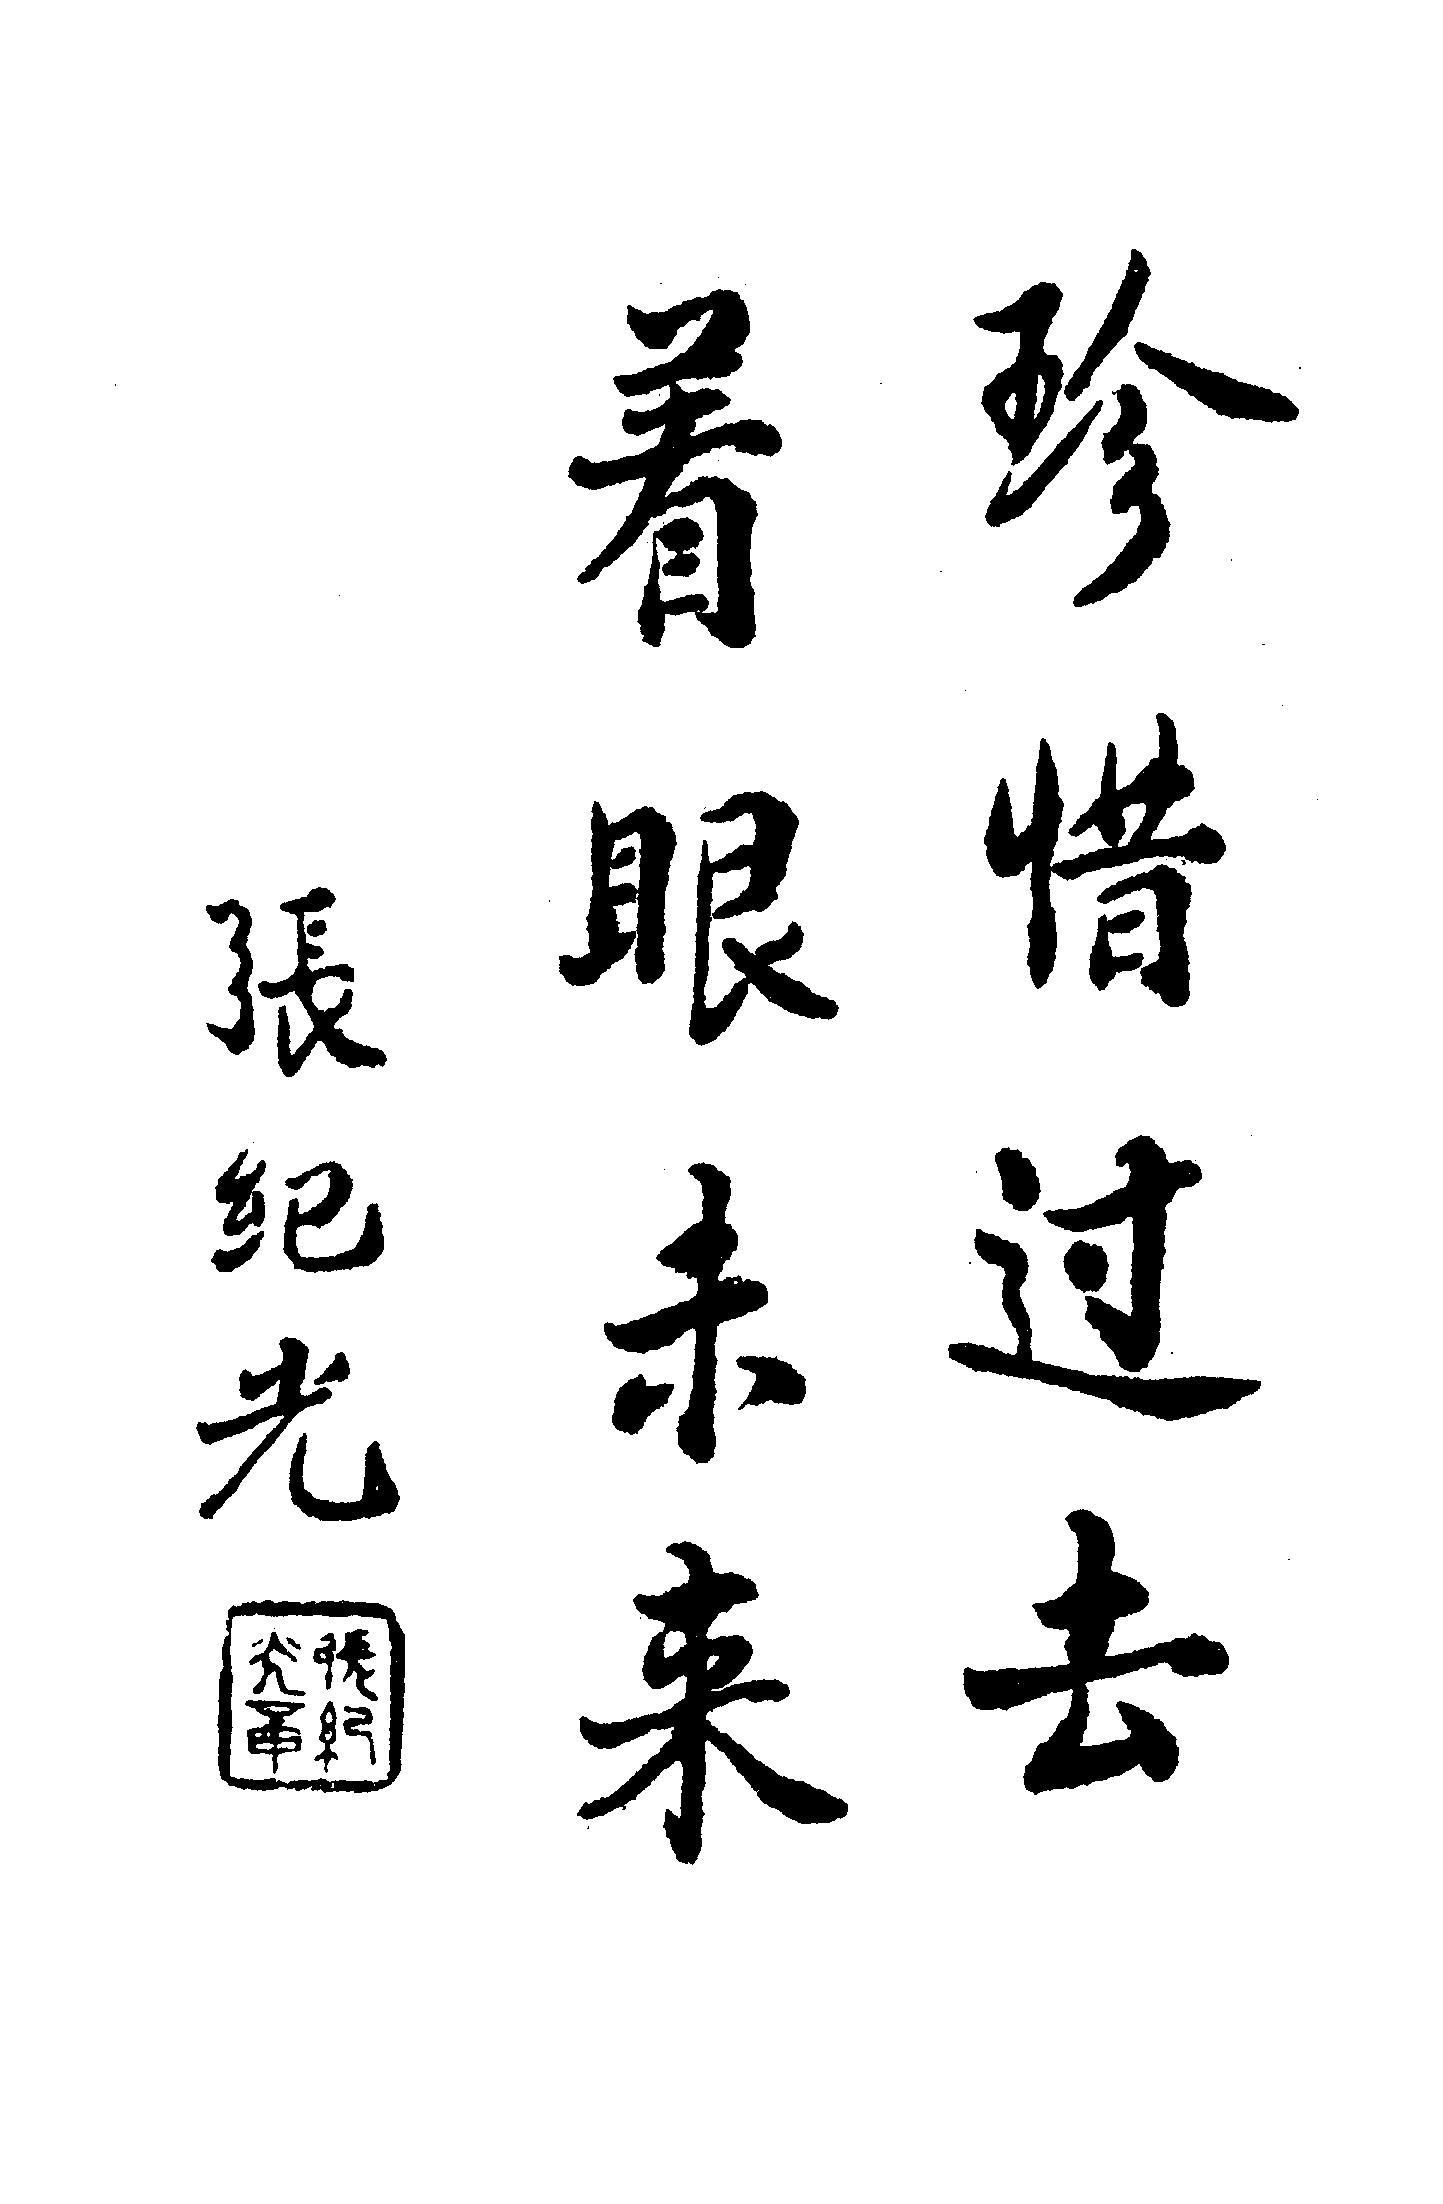 珍惜过去
着眼未来
張纪光
張紀
光